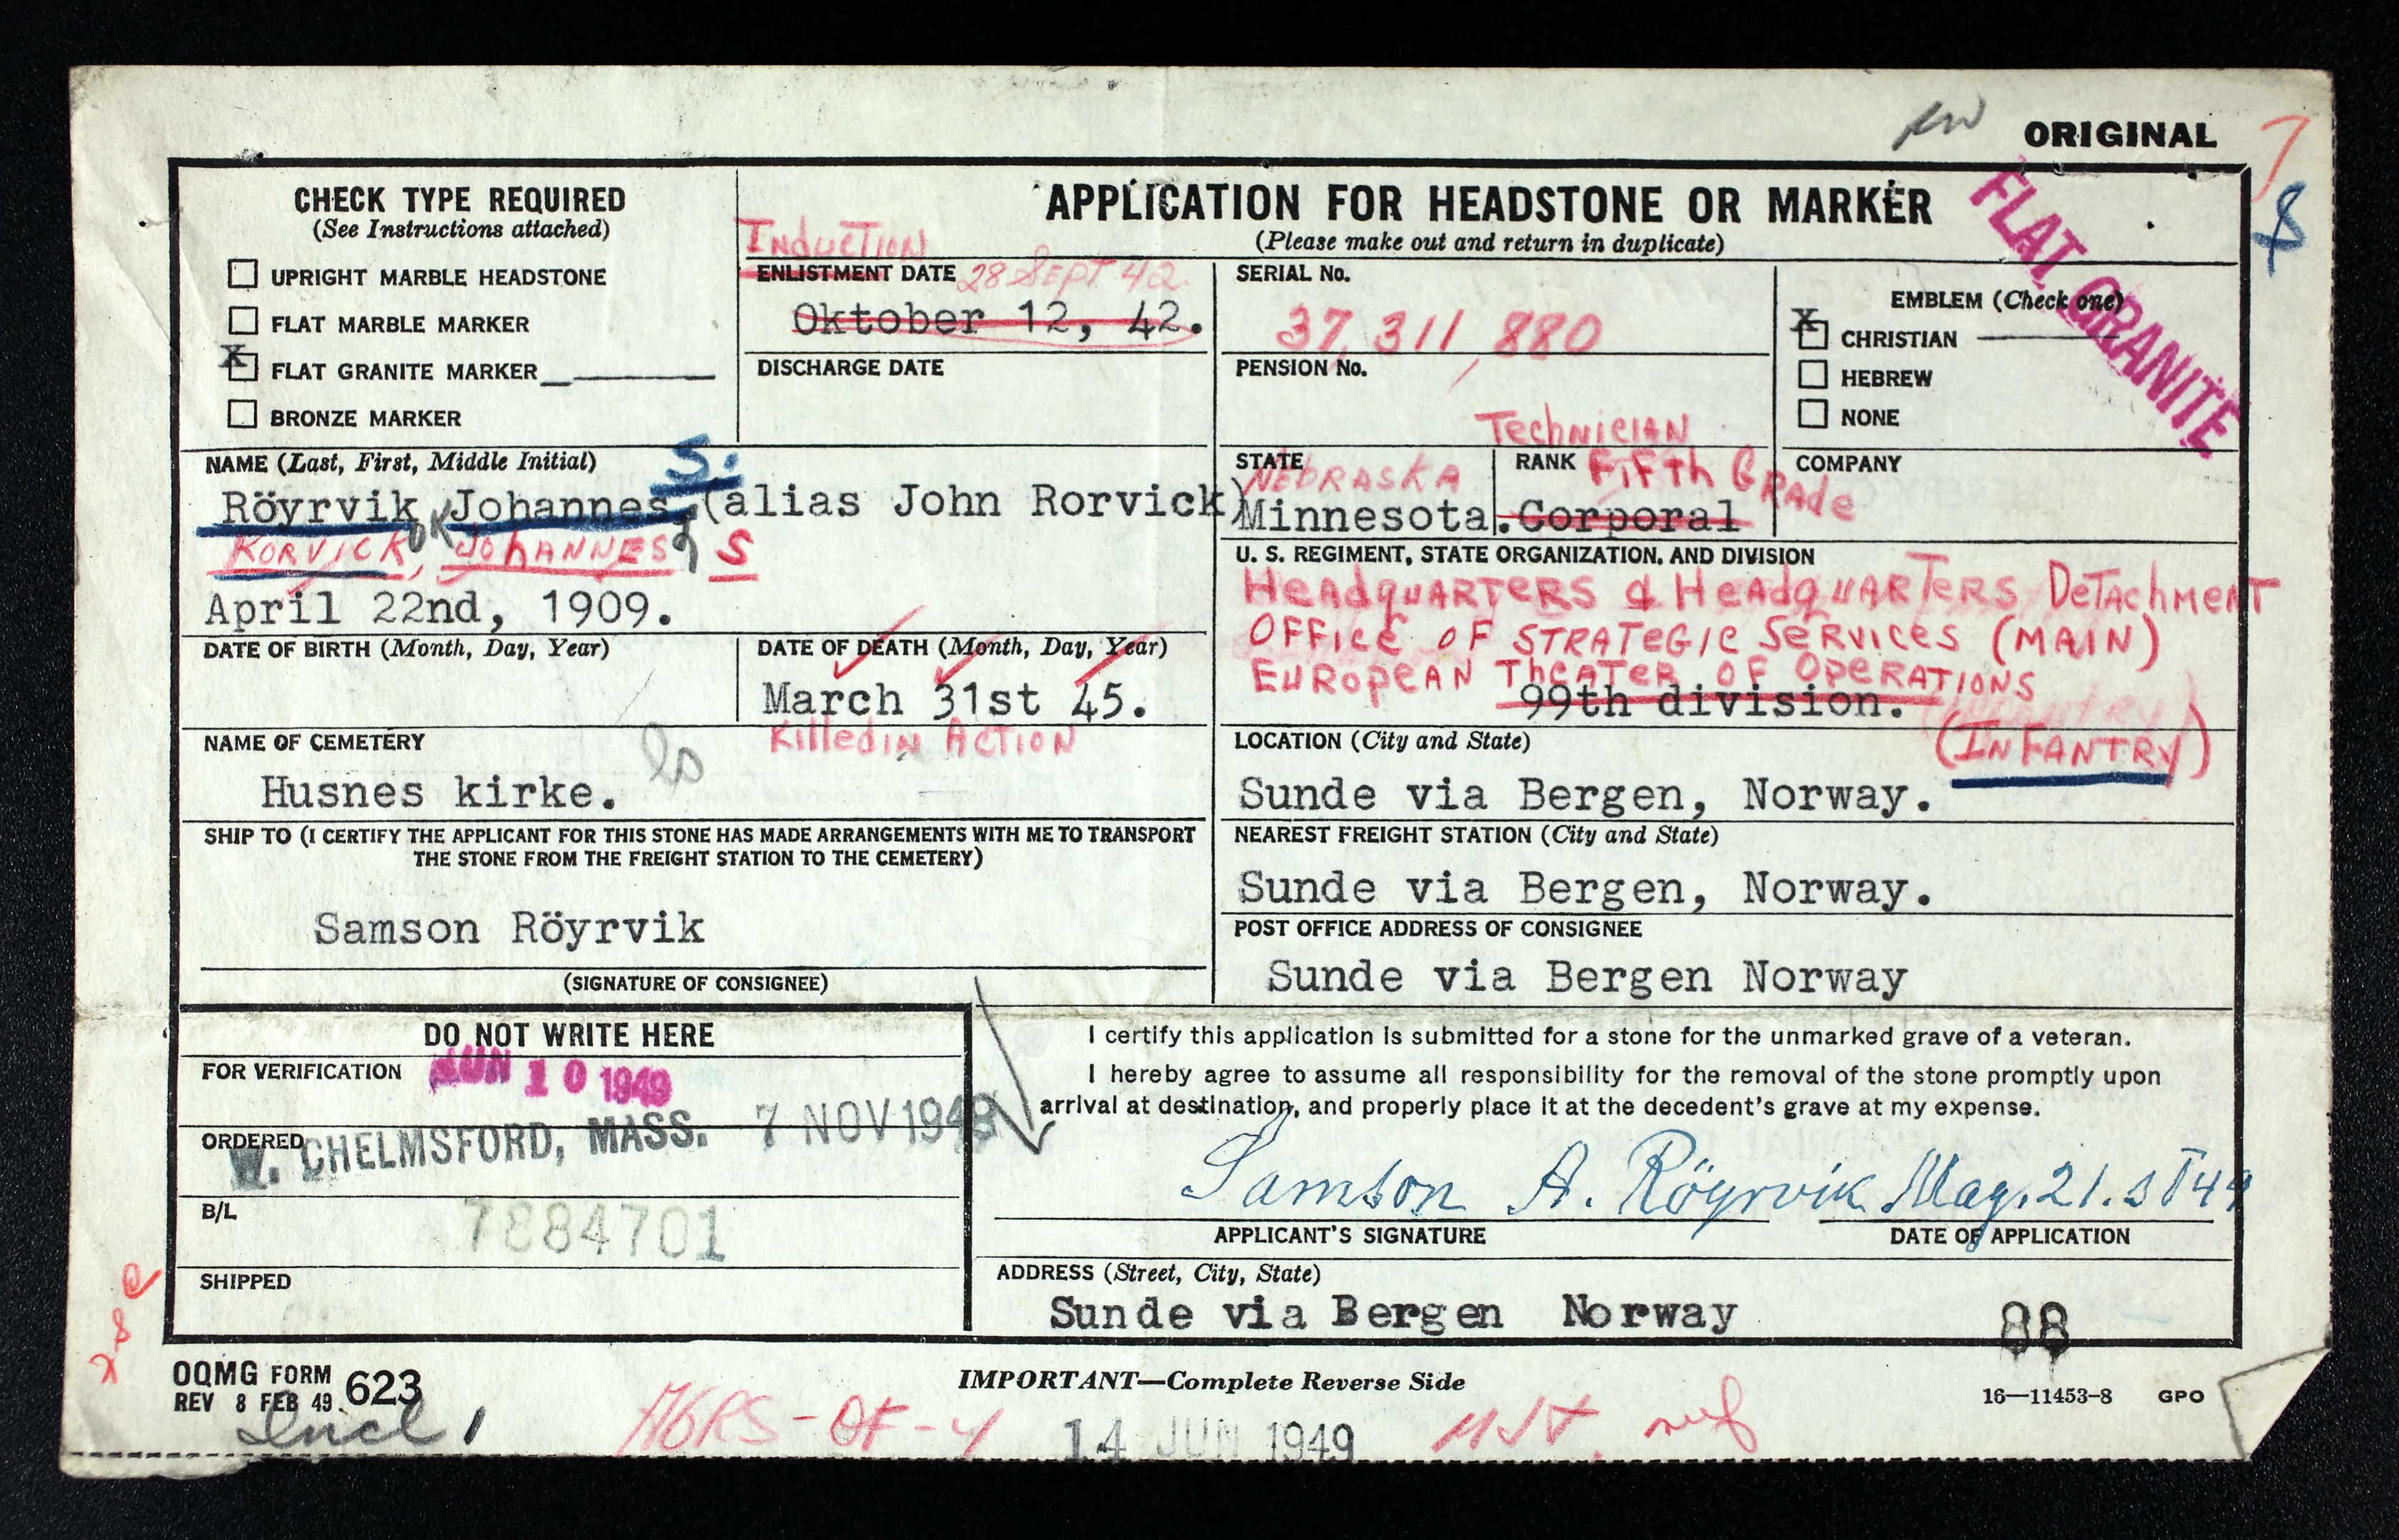 ORIGINAL
CHECK TYPE REQUIRED
(See Instructions attached)
UPRIGHT MARBLE HEADSTONE
FLAT MARBLE MARKER
X FLAT GRANITE MARKER
BRONZE MARKER
APPLICATION FOR HEADSTONE OR MARKER
(Please make out and return in duplicate)
FLAT GRANITE
INDUCTION
ENLISTMENT DATE 28 SEPT 42
Oktober 12, 42.
DISCHARGE DATE
SERIAL No.
37,311,880
PENSION No.
EMBLEM (Check one)
X CHRISTIAN
HEBREW
NONE
NAME (Last, First, Middle Initial) S.
Röyrvik Johannes, (alias John Rorvick)
OK
RORVICK, JOHANNES S
April 22nd, 1909.
DATE OF BIRTH (Month, Day, Year)
DATE OF DEATH (Month, Day, Year)
March 31st 45.
Killed IN ACTION
STATE
NEBRASKA
Minnesota.
Technician
RANK Fifth Grade
Corporal
COMPANY
U. S. REGIMENT, STATE ORGANIZATION, AND DIVISION
HeadquARTERS & HeadquARTERS DeTAchmeNT
OFFice OF STRATeGIC SeRVices (MAIN)
EURopeAN TheATeR OF OpeRATIONS
99th division.
(INFANTRY)
NAME OF CEMETERY
Husnes kirke.
LOCATION (City and State)
Sunde via Bergen, Norway.
SHIP TO (I CERTIFY THE APPLICANT FOR THIS STONE HAS MADE ARRANGEMENTS WITH ME TO TRANSPORT
THE STONE FROM THE FREIGHT STATION TO THE CEMETERY)
Samson Röyrvik
(SIGNATURE OF CONSIGNEE)
NEAREST FREIGHT STATION (City and State)
Sunde via Bergen, Norway.
POST OFFICE ADDRESS OF CONSIGNEE
Sunde via Bergen Norway
DO NOT WRITE HERE
FOR VERIFICATION JUN 10 1949
ORDERED W. CHELMSFORD, MASS. 7 NOV 1949
B/L 7884701
SHIPPED
I certify this application is submitted for a stone for the unmarked grave of a veteran.
I hereby agree to assume all responsibility for the removal of the stone promptly upon
arrival at destination, and properly place it at the decedent's grave at my expense.
Samson A. Röyrvik May. 21. st 49
APPLICANT'S SIGNATURE
DATE OF APPLICATION
ADDRESS (Street, City, State)
Sunde via Bergen Norway
88
OQMG FORM 623
REV 8 FEB 49
IMPORTANT—Complete Reverse Side
16—11453-8 GPO
Incl 1
14 JUN 1949